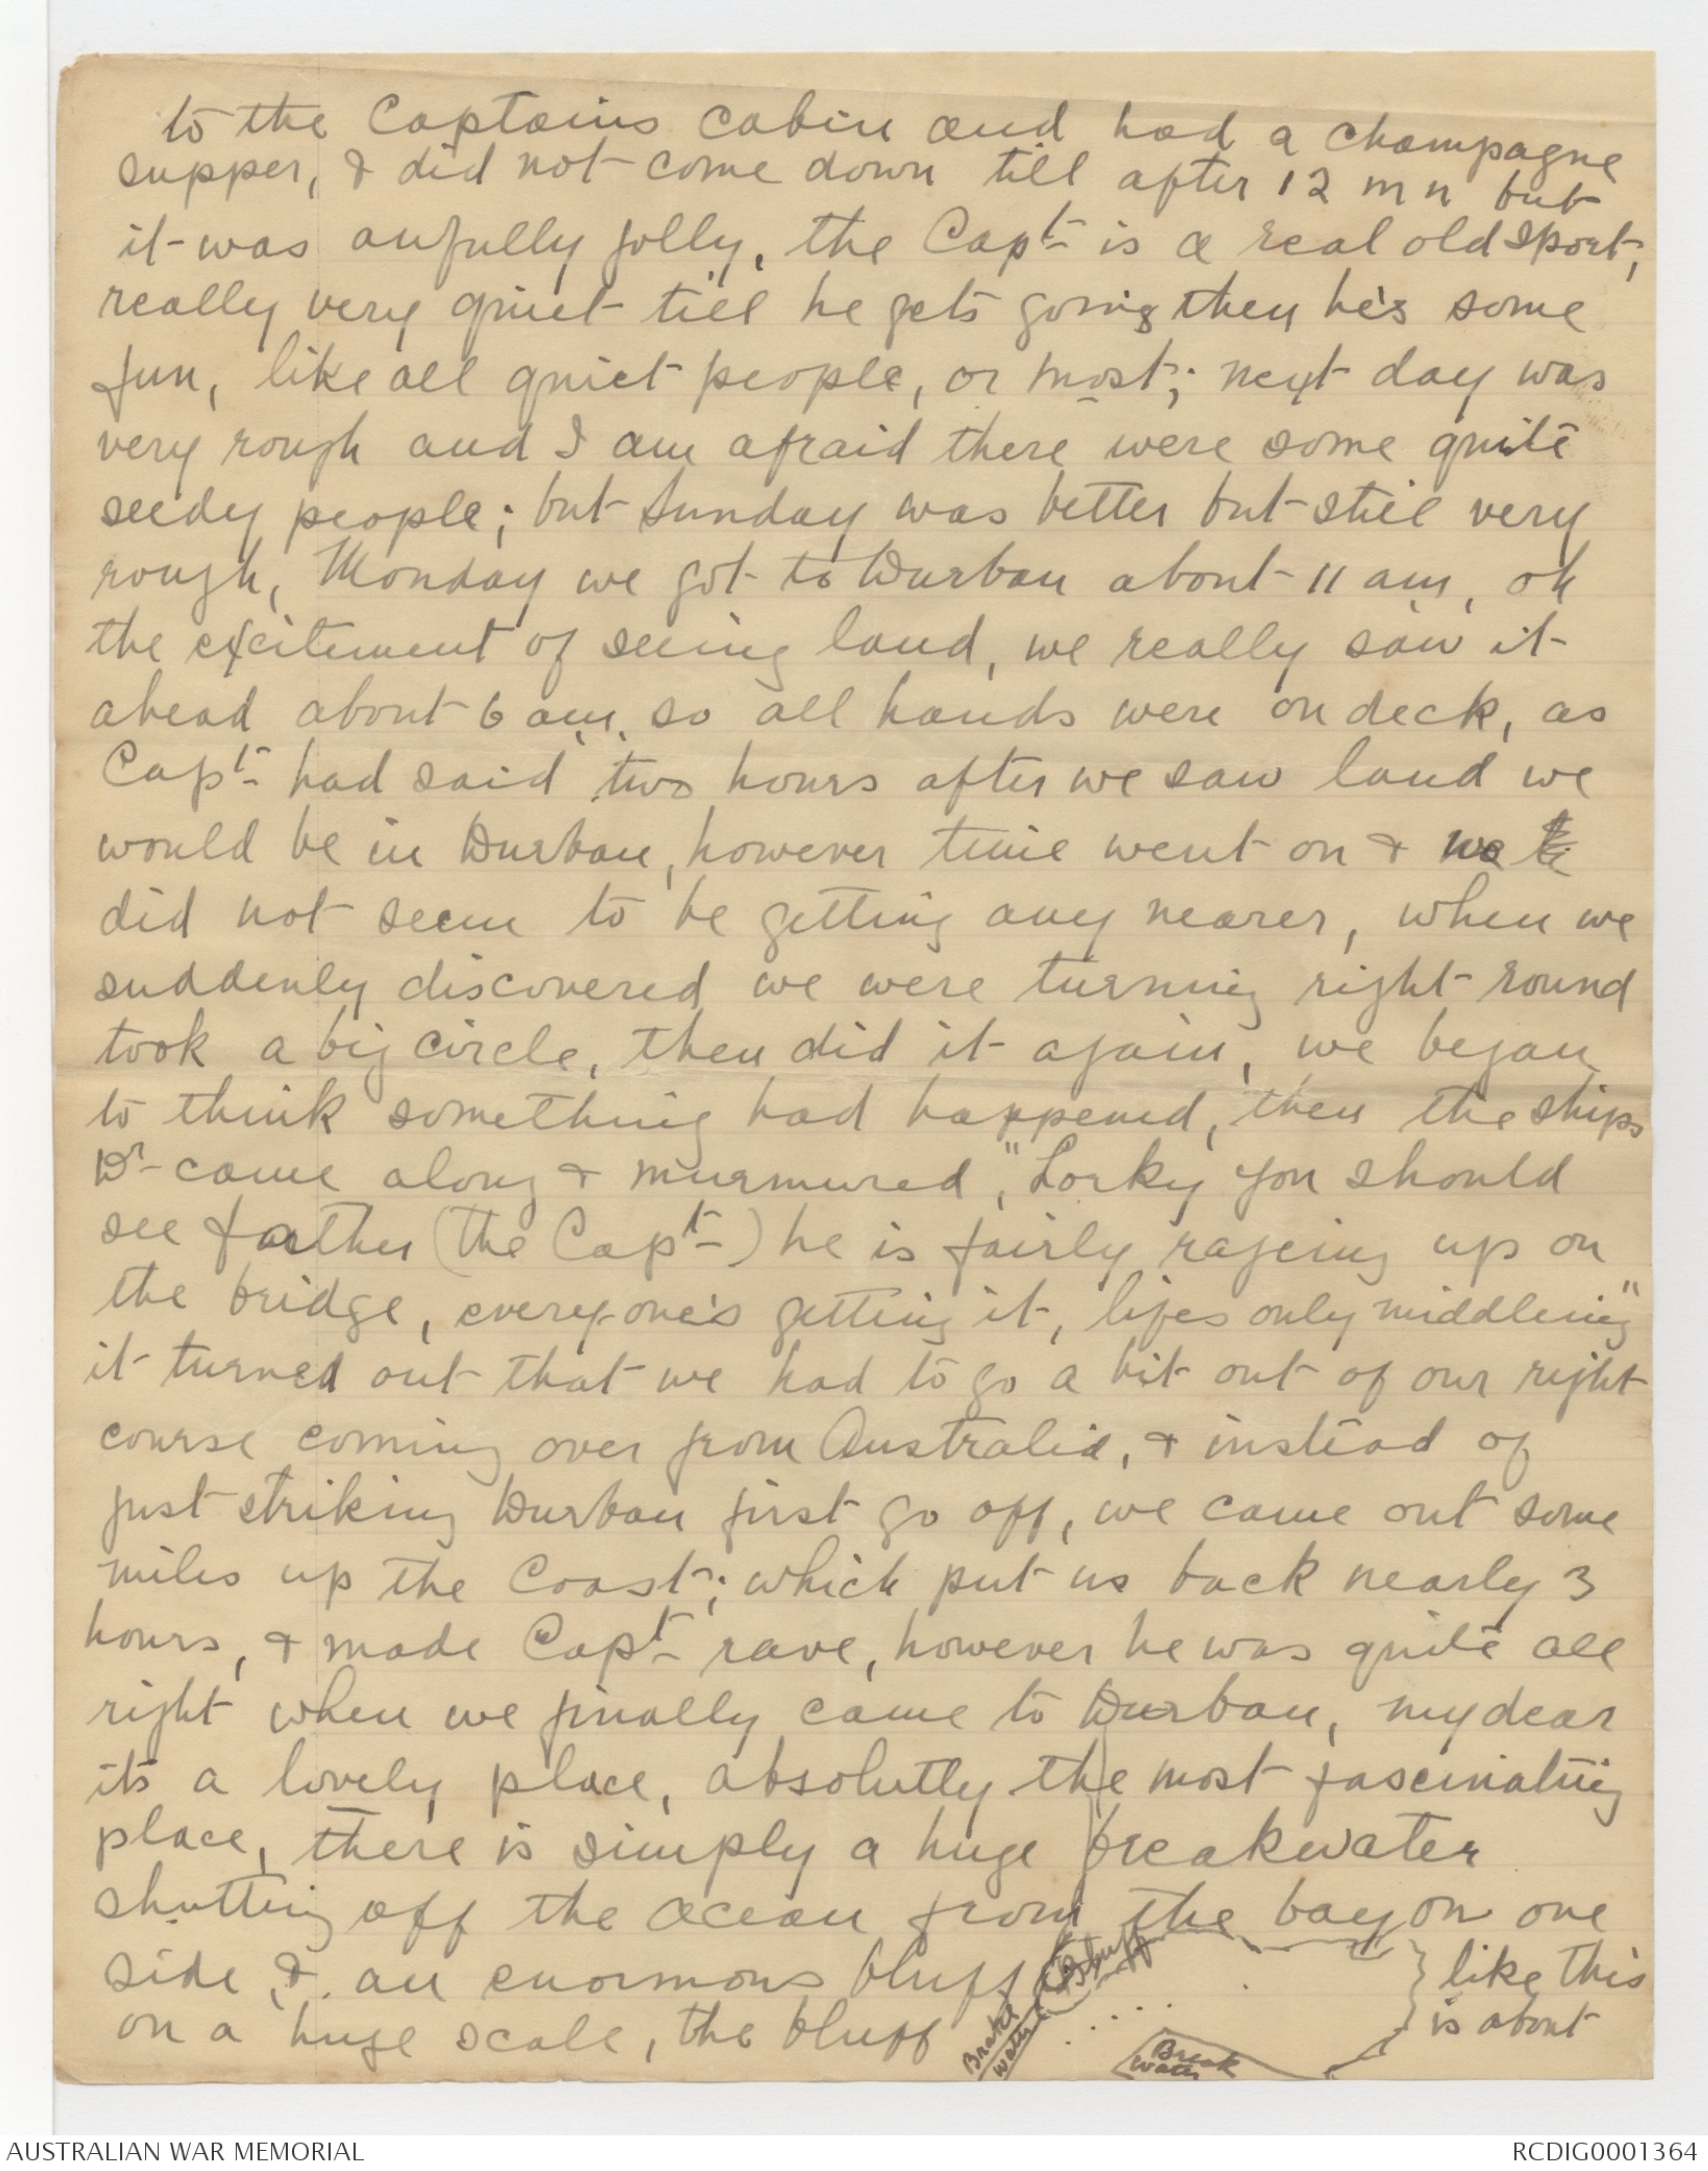 to the Captains cabin and had a champagne
supper, & did not come down till after 12 mn but
it was awfully jolly, the Capt is a real old sport,
really very quiet till he gets going then he's some
fun, like all quiet people, or most; next day was
very rough and I am afraid there were some quite
seedy people; but Sunday was better but still very
rough, Monday we got to Durban about 11 am, oh
the excitement of seeing land, we really saw it
ahead about 6 am, so all hands were on deck, as
Capt had said two hours after we saw land we
would be in Durban, however time went on & we
did not seem to be getting any nearer, when we
suddenly discovered we were turning right round
took a big circle, then did it again, we began
to think something had happened, then the ships
Dr came along & murmured, "Lorky you should
see father (the Capt) he is fairly rageing up on
the bridge, everyone's getting it, lifes only middleing"
it turned out that we had to go a bit out of our right
course coming over from Australia, & instead of
just striking Durban first go off, we came out some
miles up the Coast; which put us back nearly 3
hours, & made Capt rave, however he was quite all
right when we finally came to Durban, my dear
its a lovely place, absolutly the most fascinating
place, there is simply a huge breakwater
shutting off the ocean from the bay on one
side & an enormous bluff
Bluff
like this
on a huge scale, the bluff
is about
Brake
water
Break
water
AUSTRALIAN WAR MEMORIAL
RCDIG0001364